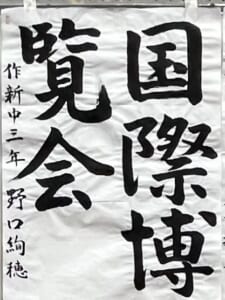 国際博
覧会
作新中三年 野口絢穂